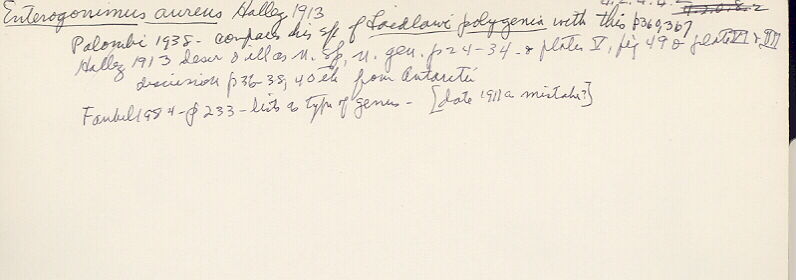 Enterogonimus aureus Hallez 1913
Palombi 1938 - compares his sp. of Laidlawi polygenia with this p369,367
Hallez 1913 descr & ill as n. sp, n. gen. p24-34 - & plates V, fig 49 & plate VI & VII
discussion p36-38, 40 etc from Antarctic
Faubel 1984 - p 233 - lists as type of genus - [date 1911 a mistake?]